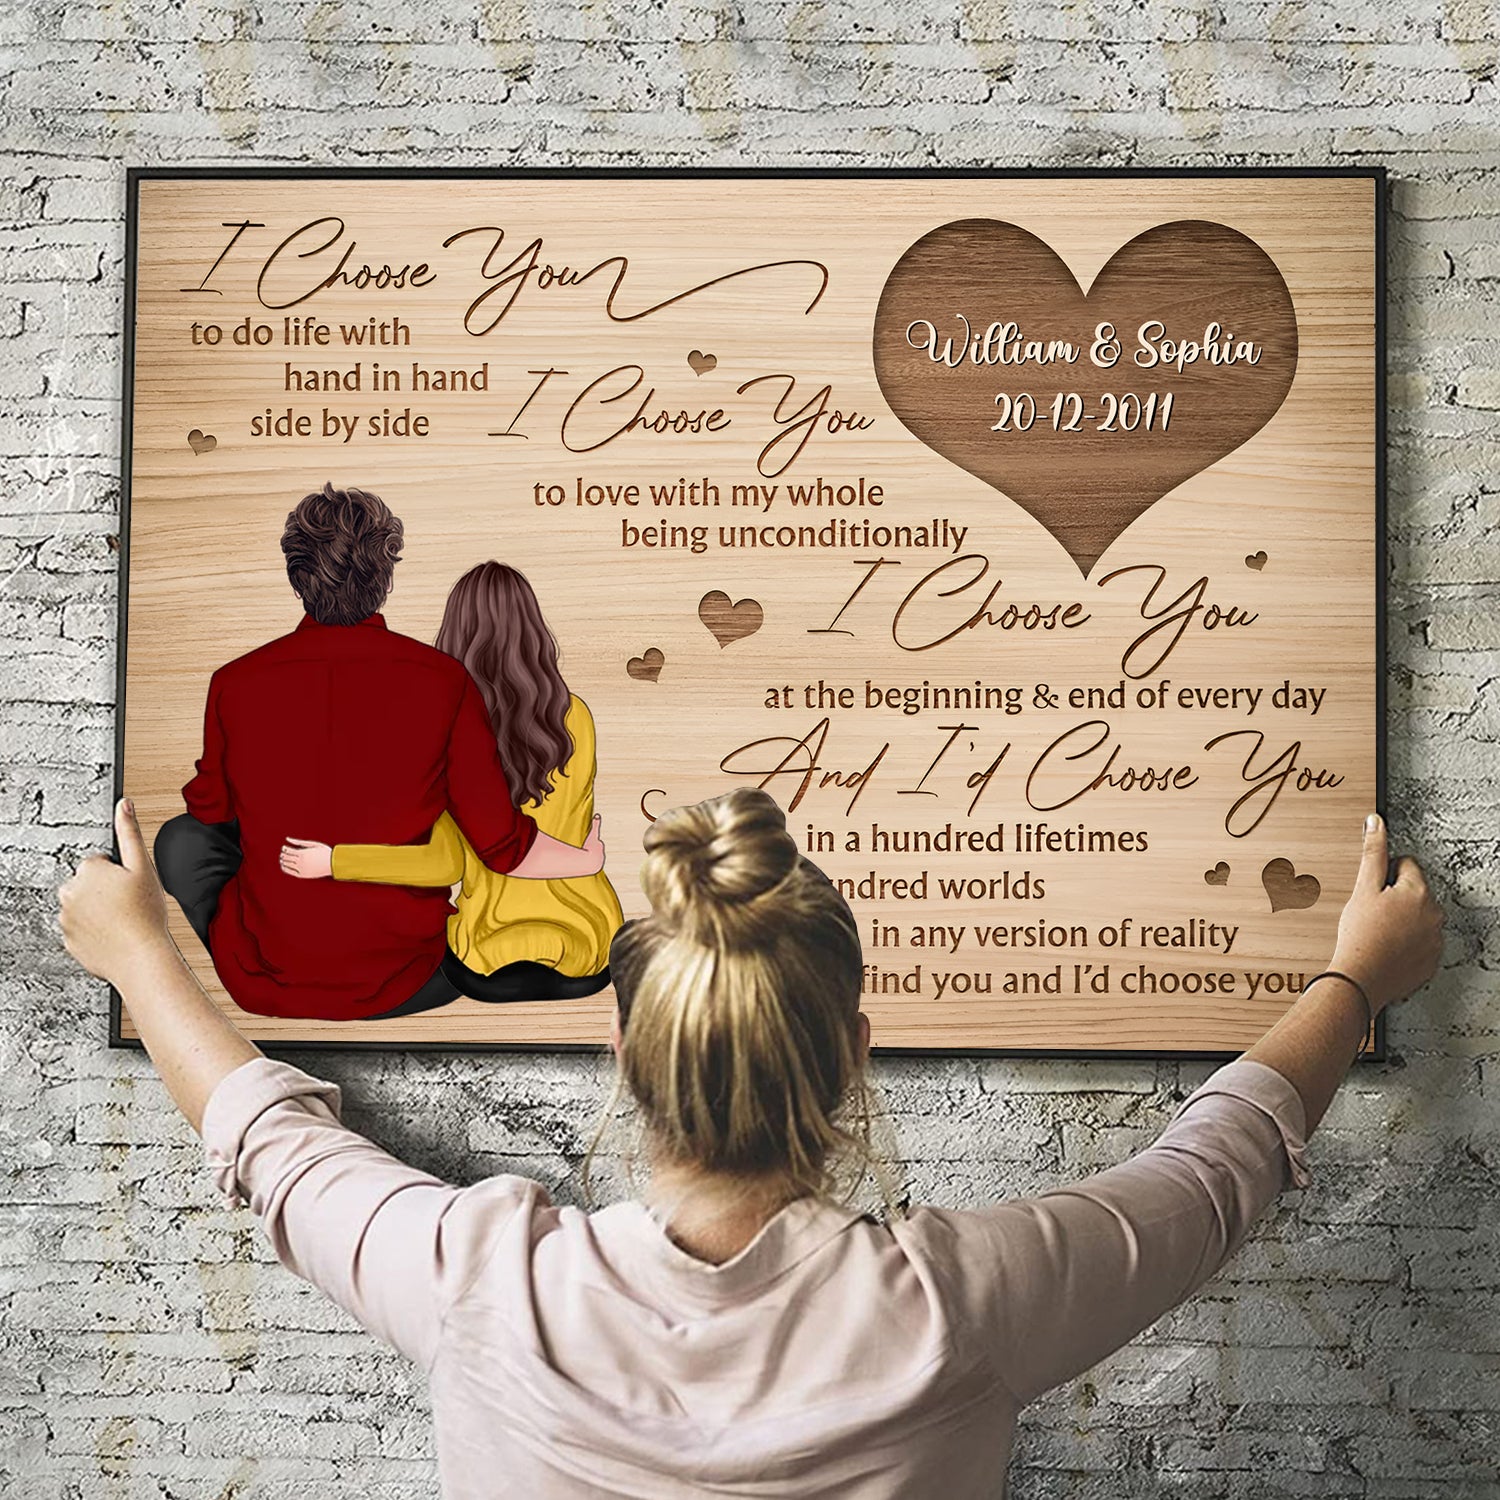 I Choose You
to do life with
hand in hand
side by side
William & Sophia
20-12-2011
I Choose You
to love with my whole
being unconditionally
I Choose You
at the beginning & end of every day
And I'd Choose You
in a hundred lifetimes
worlds
in any version of reality
find you and I'd choose you